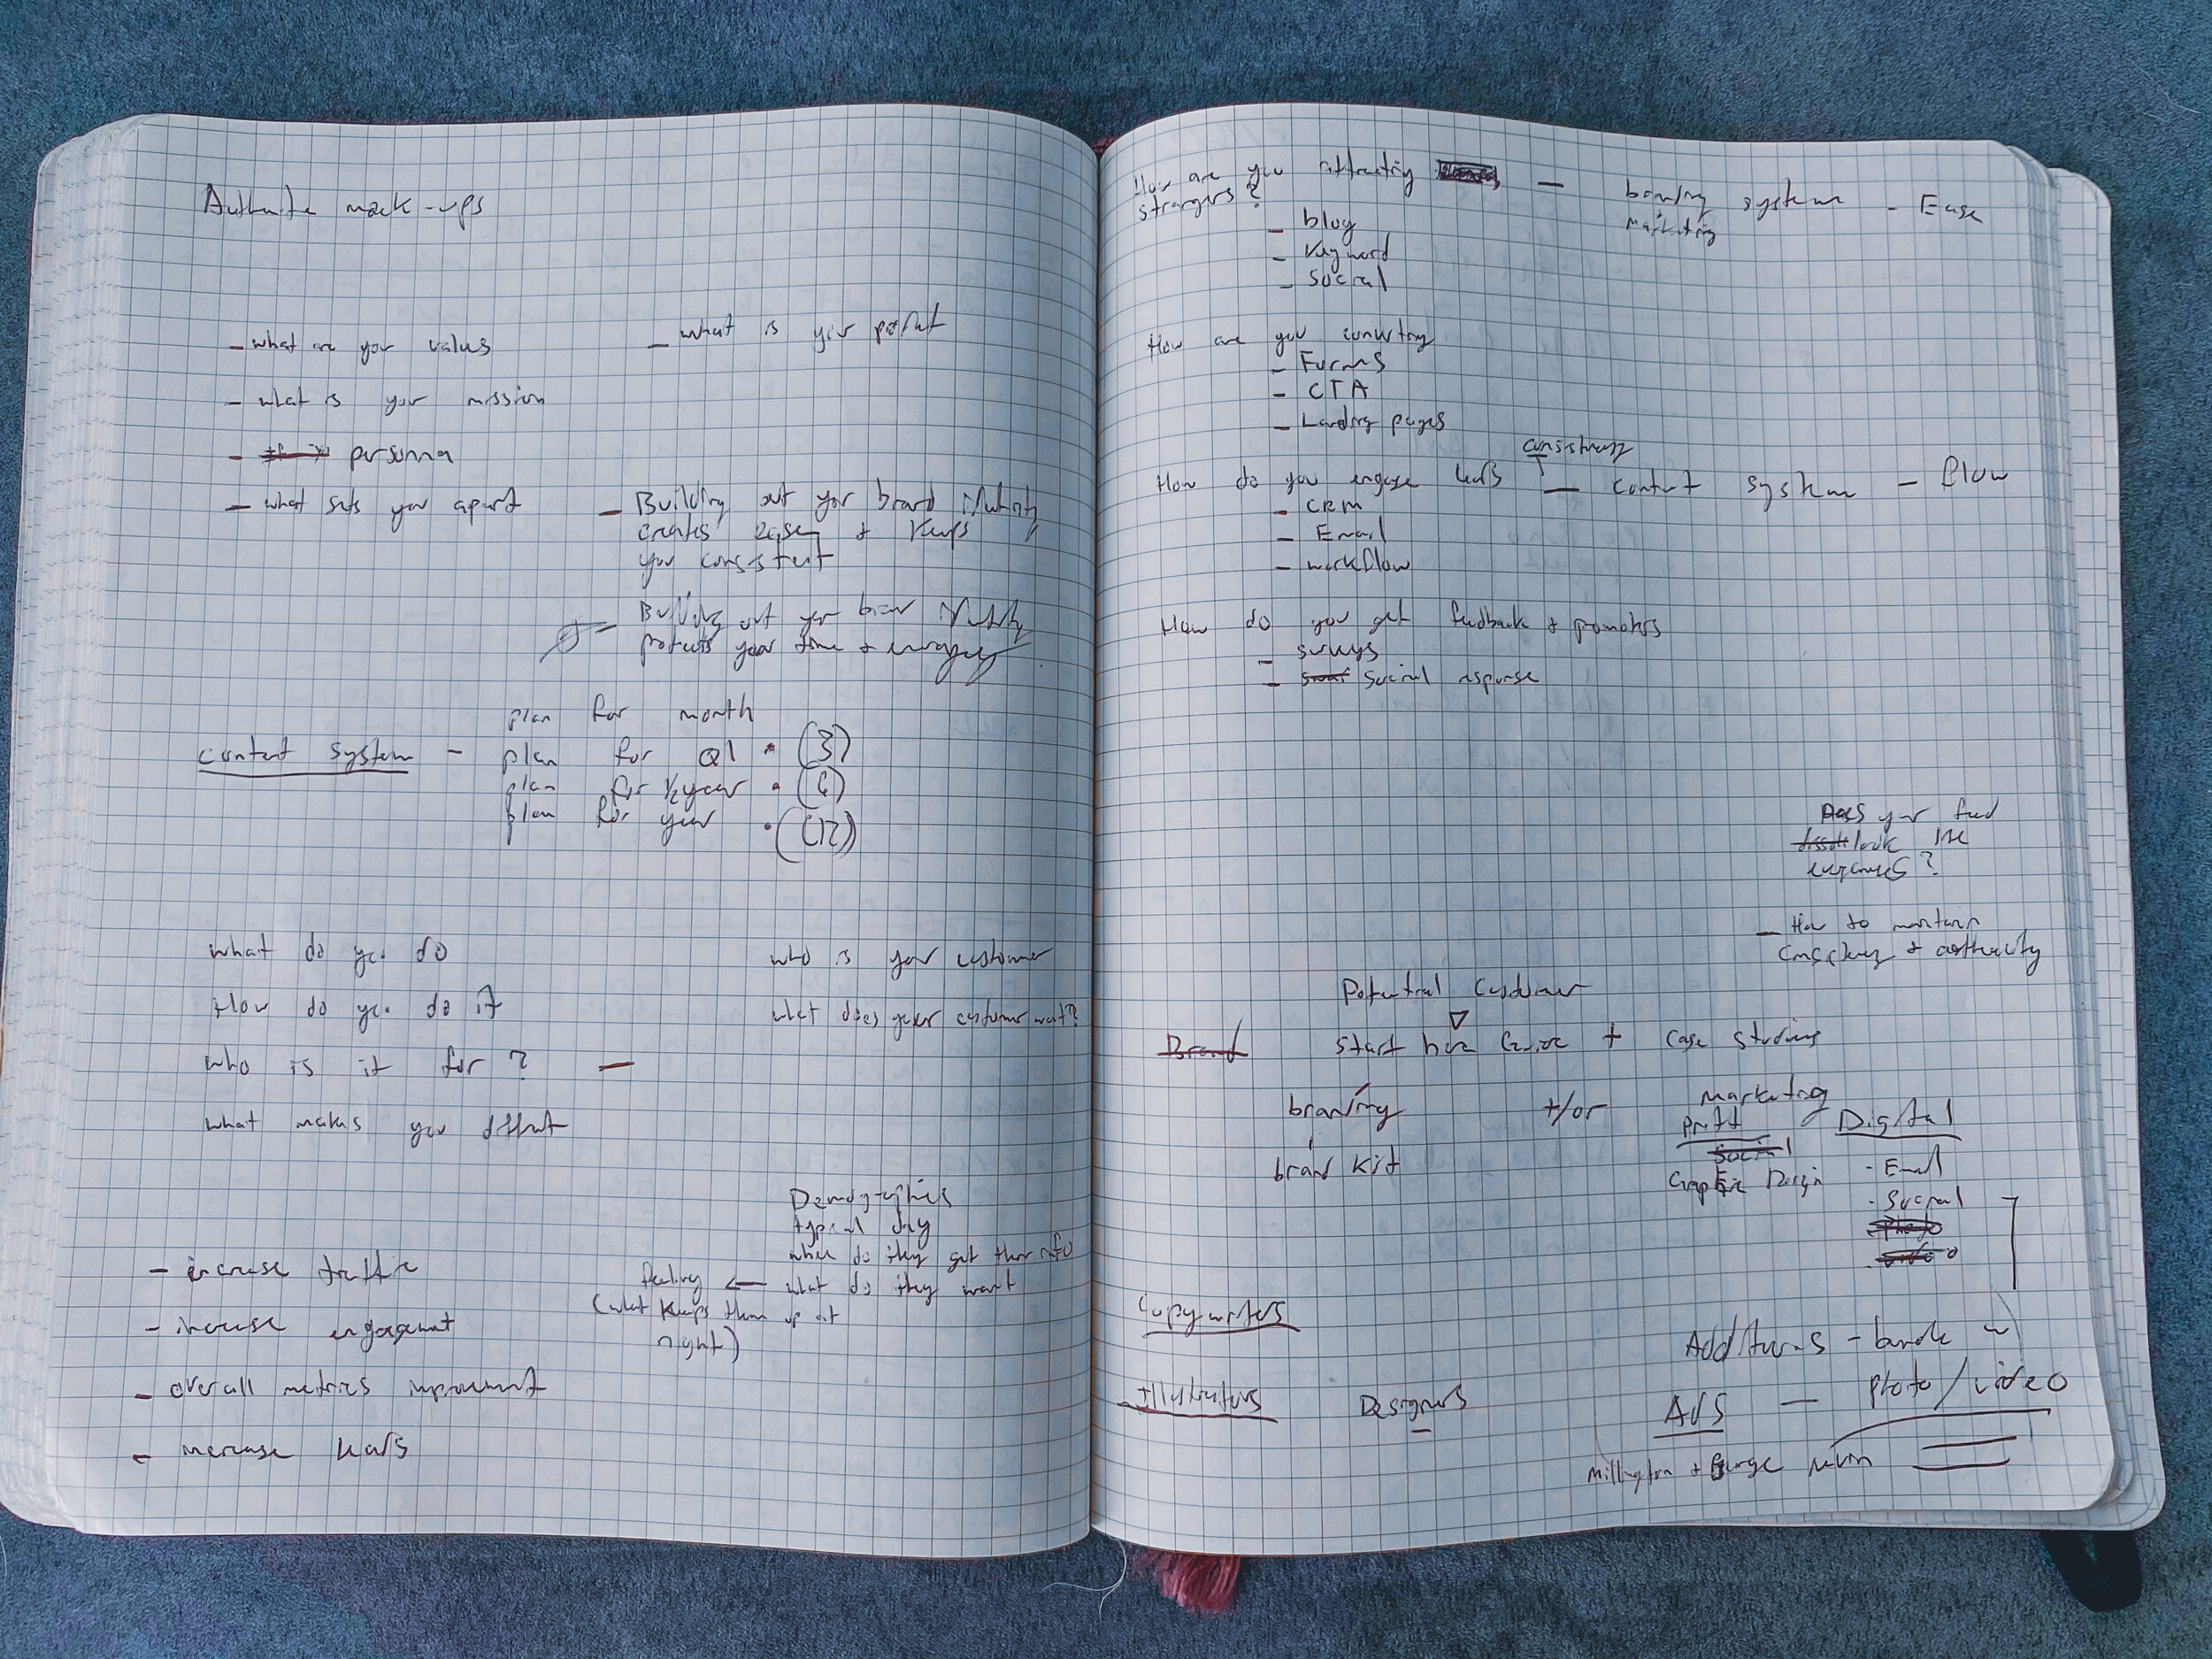 mock-ups
- what are your values
- what is your point
- what is your mission
- personna
- what sets you apart
- Building out your brand identity
creates ease & keeps
you consistent
- Building out your brand identity
protects your time & energy
plan for month
content system - plan for Q1 • (3)
plan for 1/2 year • (6)
plan for year • (12)
what do you do
How do you do it
who is it for ? -
what makes you different
who is your customer
what does your customer want?
Demographics
typical day
where do they get their info
feeling ← what do they want
(what keeps them up at
night)
- increase traffic
- increase engagement
- overall metrics improvement
- increase leads
How are you attracting
strangers ?
- branding system - Ease
marketing
- blog
- Keyword
- Social
How are you converting
- Forms
- CTA
- Landing pages
consistency
How do you engage leads - content system - flow
- CRM
- Email
- workflow
How do you get feedback & promoters
- surveys
- social response
Does your feed
look like
- How to maintain
consistency & authenticity
Potential Customer
Brand
start here + case studies
branding +/or marketing
brand kit
Print
Social
Graphic Design
Digital
- Email
- Social
Photo
Video
Copywriters
Illustrators
Designers
- bundle w
Ads - photo/video